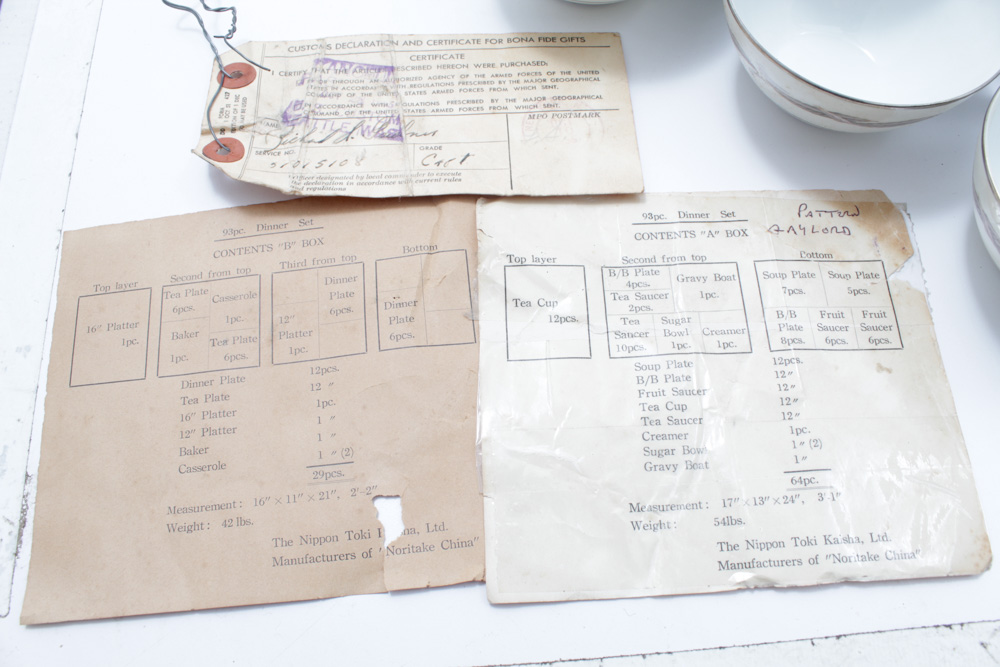 CUSTOMS DECLARATION AND CERTIFICATE FOR BONA FIDE GIFTS
CERTIFICATE
I CERTIFY THAT THE ARTICLES PRESCRIBED HEREON WERE PURCHASED:
THROUGH AN AUTHORIZED AGENCY OF THE ARMED FORCES OF THE UNITED
STATES IN ACCORDANCE WITH REGULATIONS PRESCRIBED BY THE MAJOR GEOGRAPHICAL
COMMAND OF THE UNITED STATES ARMED FORCES FROM WHICH SENT.
IN ACCORDANCE WITH REGULATIONS PRESCRIBED BY THE MAJOR GEOGRAPHICAL
COMMAND OF THE UNITED STATES ARMED FORCES FROM WHICH SENT.
MPO POSTMARK
SERVICE NO.
GRADE
designated by local commander to execute
the declaration in accordance with current rules
and regulations
93pc. Dinner Set
CONTENTS "B" BOX
Top layer
16" Platter
1pc.
Second from top
Tea Plate
6pcs.
Casserole
1pc.
Baker
1pc.
Tea Plate
6pcs.
Third from top
Dinner
Plate
6pcs.
12"
Platter
1pc.
Bottom
Dinner
Plate
6pcs.
Dinner Plate 12pcs.
Tea Plate 12 "
16" Platter 1pc.
12" Platter 1 "
Baker 1 "
Casserole 1 " (2)
29pcs.
Measurement: 16" × 11" × 21", 2'-2"
Weight: 42 lbs.
The Nippon Toki Ltd.
Manufacturers of "Noritake China"
93pc. Dinner Set
PATTERN
GAYLORD
CONTENTS "A" BOX
Top layer
Tea Cup
12pcs.
Second from top
B/B Plate
4pcs.
Gravy Boat
1pc.
Tea Saucer
2pcs.
Tea
Saucer
10pcs.
Sugar
Bowl
1pc.
Creamer
1pc.
Bottom
Soup Plate
7pcs.
Soup Plate
5pcs.
B/B
Plate
8pcs.
Fruit
Saucer
6pcs.
Fruit
Saucer
6pcs.
Soup Plate 12pcs.
B/B Plate 12"
Fruit Saucer 12"
Tea Cup 12"
Tea Saucer 12"
Creamer 1pc.
Sugar Bowl 1" (2)
Gravy Boat 1"
64pc.
Measurement: 17" × 13" × 24", 3'-1"
Weight: 54lbs.
The Nippon Toki Kaisha, Ltd.
Manufacturers of "Noritake China"